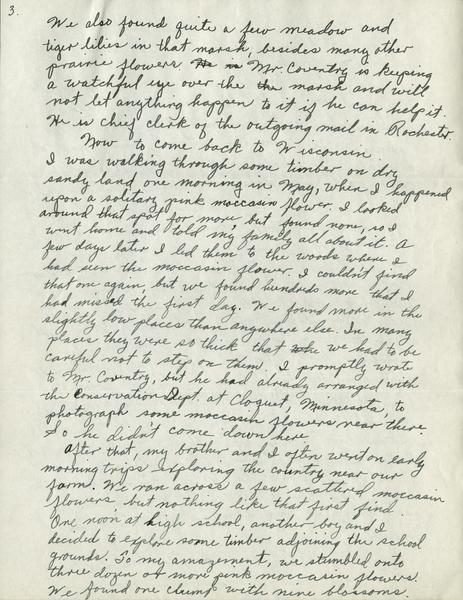 3.
We also found quite a few meadow and
tiger lilies in that marsh, besides many other
prairie flowers. He is Mr. Coventry is keeping
a watchful eye over the the marsh and will
not let anything happen to it if he can help it.
He is chief clerk of the outgoing mail in Rochester.
Now to come back to Wisconsin.
I was walking through some timber on dry
sandy land one morning in May, when I happened
upon a solitary pink moccasin flower. I looked
around that spot for more, but found none, so I
went home and told my family all about it. A
few days later I led them to the woods where I
had seen the moccasin flower. I couldn't find
that one again, but we found hundreds more that I
had missed the first day. We found more in the
slightly low places than anywhere else. In many
places they were so thick that we had to be
careful not to step on them. I promptly wrote
to Mr. Coventry, but he had already arranged with
the Conservation Dept. at Cloquet, Minnesota, to
photograph some moccasin flowers near there.
So he didn't come down here.
After that, my brother and I often went on early
morning trips exploring the country near our
farm. We ran across a few scattered moccasin
flowers, but nothing like that first find.
One noon at high school, another boy and I
decided to explore some timber adjoining the school
grounds. To my amazement, we stumbled onto
three dozen or more pink moccasin flowers.
We found one clump with nine blossoms.